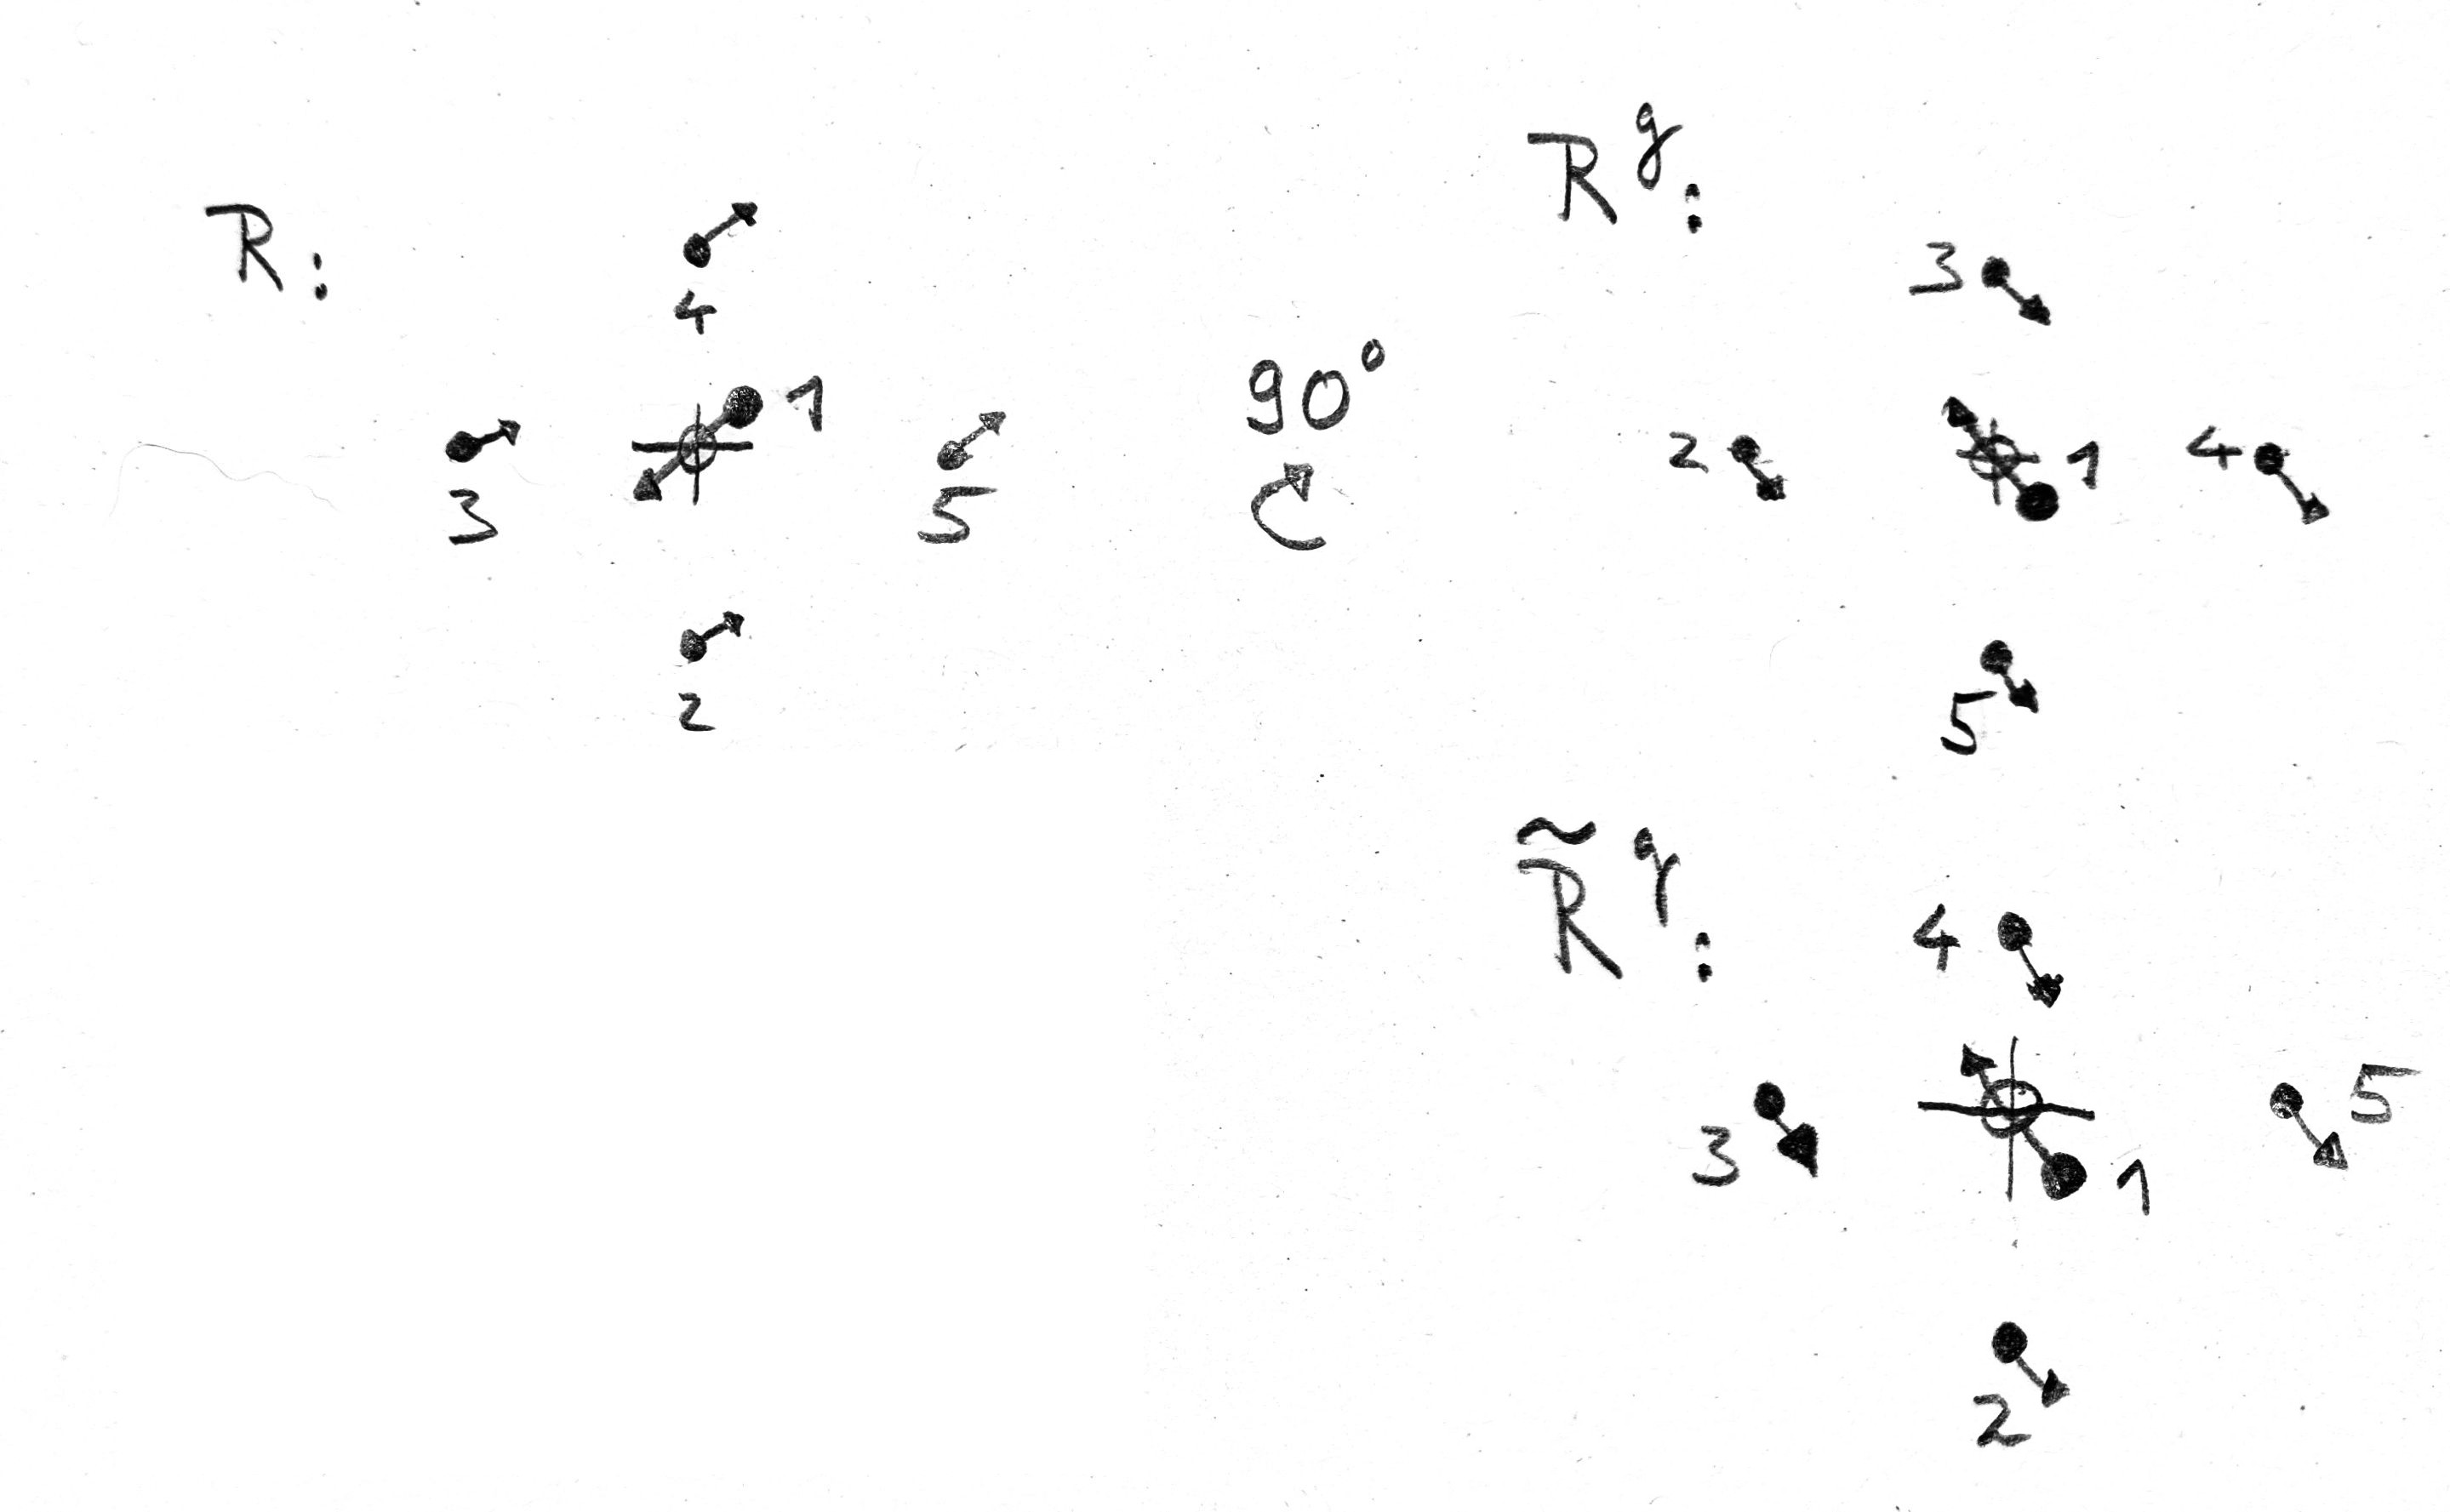 R:
4
3 1 5
2
90°
R^g:
3
2 1 4
5
R̃^g:
4
3 1 5
2